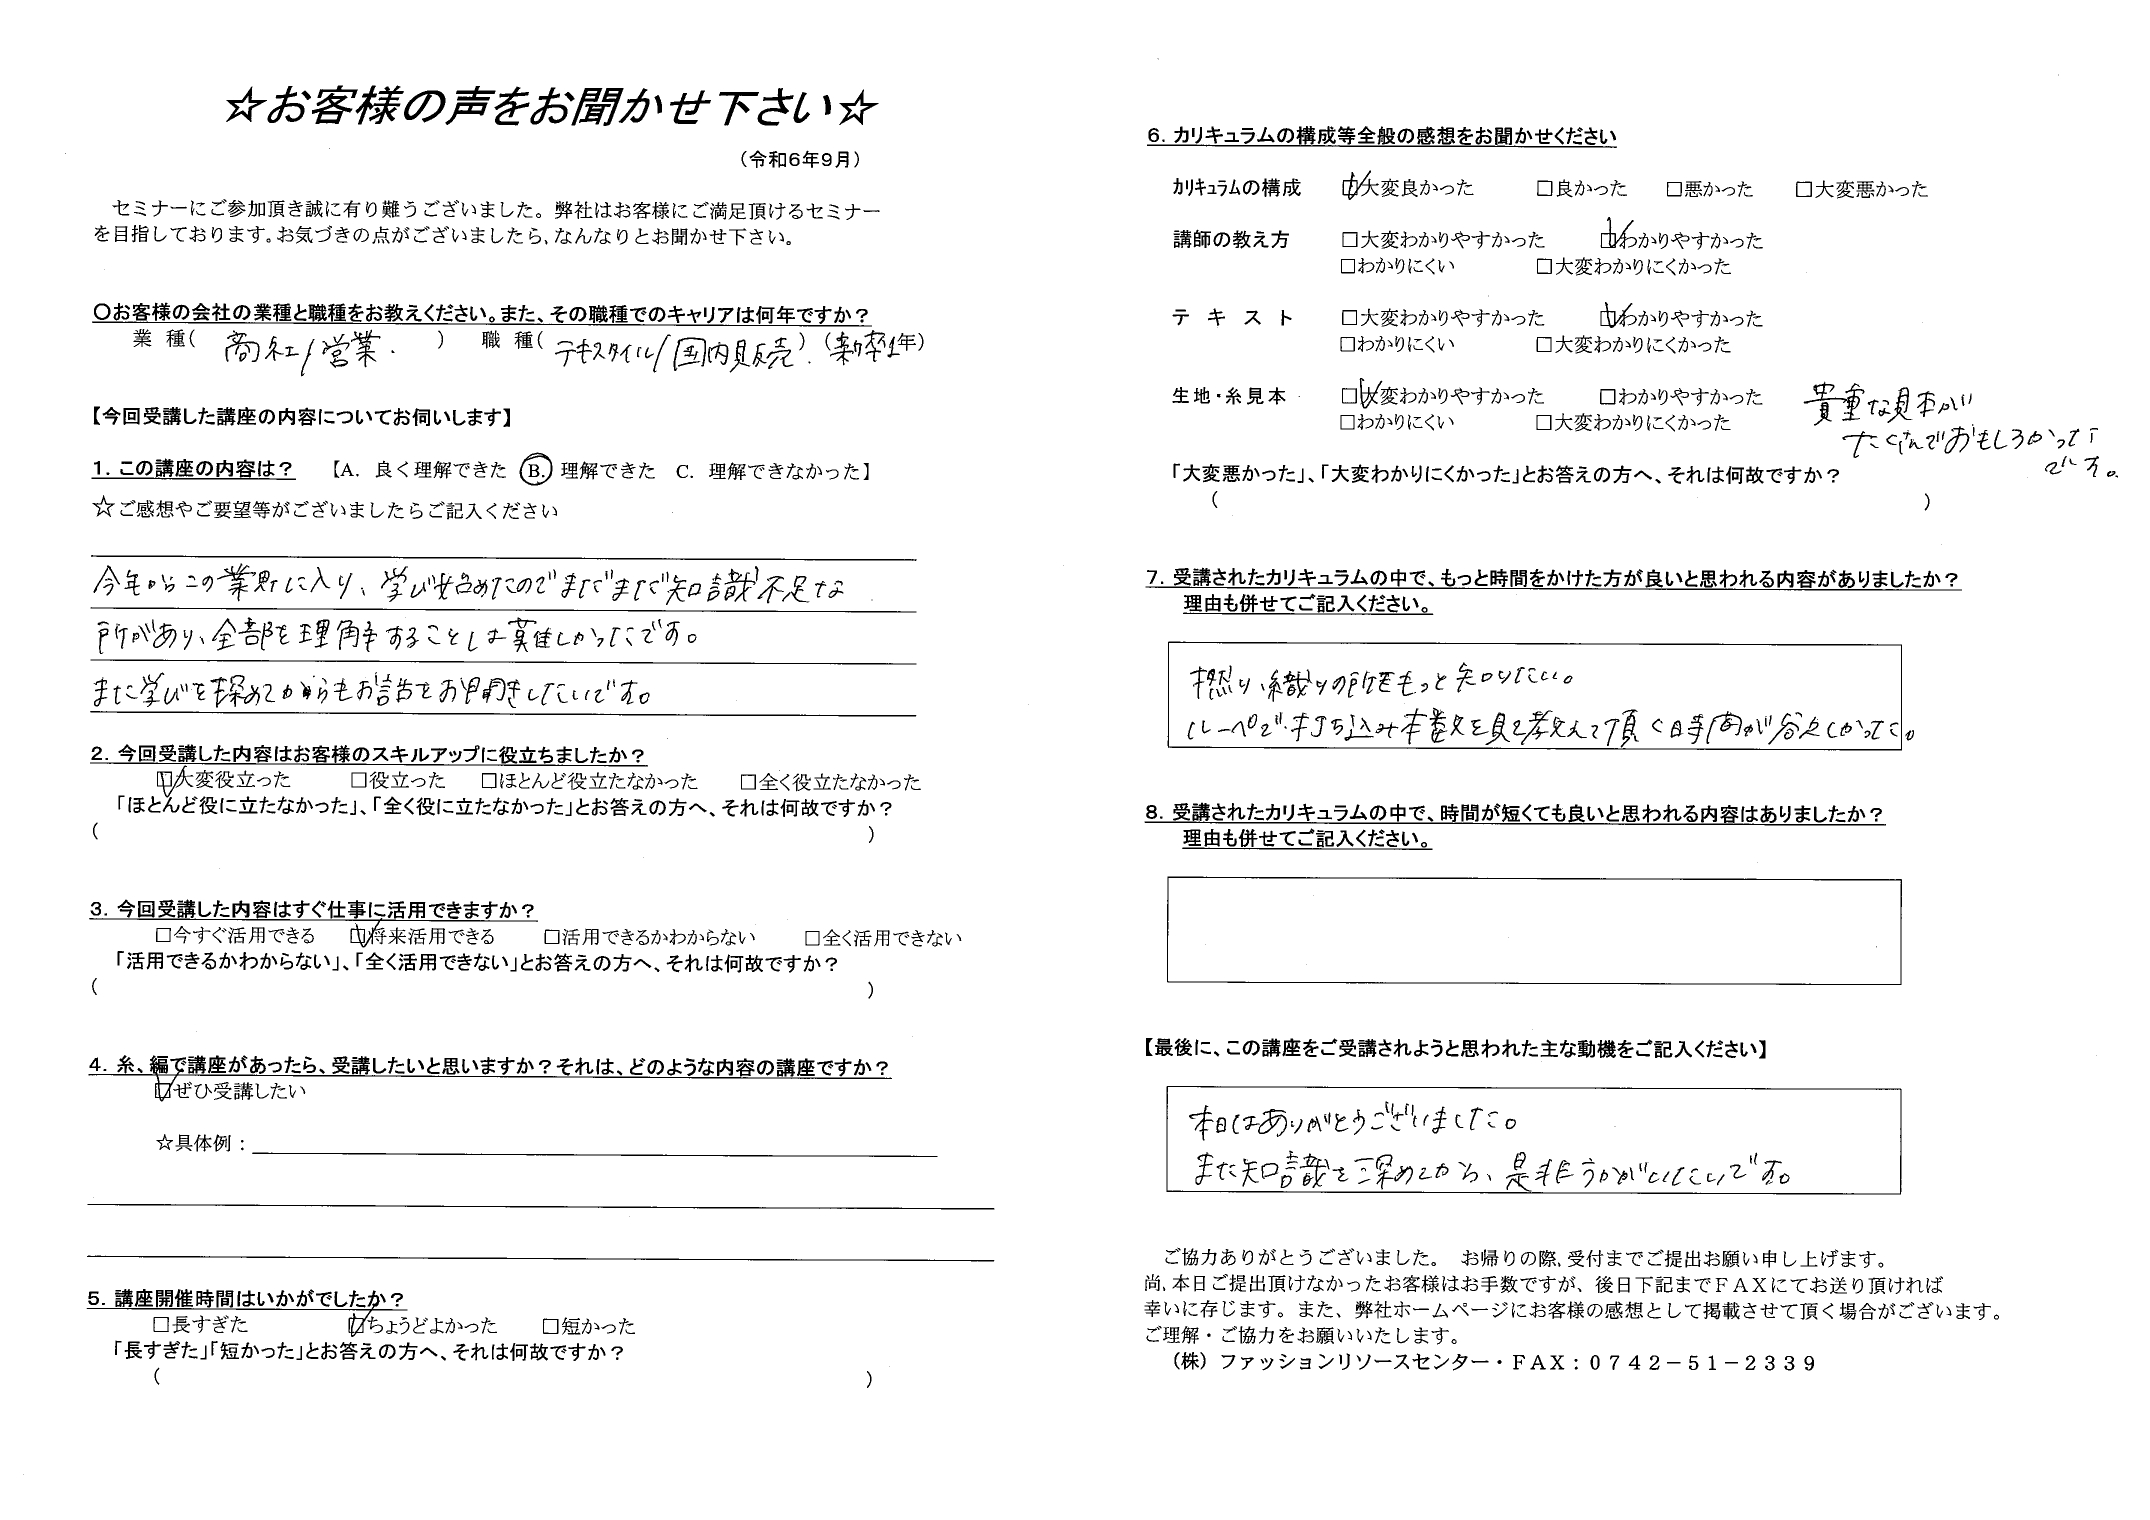 ☆お客様の声をお聞かせ下さい☆
（令和6年9月）
セミナーにご参加頂き誠に有り難うございました。弊社はお客様にご満足頂けるセミナー
を目指しております。お気づきの点がございましたら、なんなりとお聞かせ下さい。
〇お客様の会社の業種と職種をお教えください。また、その職種でのキャリアは何年ですか？
業 種( 商社/営業. ) 職 種( テキスタイル/国内販売 ) (新卒1年)
【今回受講した講座の内容についてお伺いします】
1. この講座の内容は？ 【A. 良く理解できた B. 理解できた C. 理解できなかった】
☆ご感想やご要望等がございましたらご記入ください
今年からこの業界に入り、学び始めたのでまだまだ知識不足な
所があり、全部を理解することは難しかったです。
また学びを深めてからもお話をお聞きしたいです。
2. 今回受講した内容はお客様のスキルアップに役立ちましたか？
☑大変役立った □役立った □ほとんど役立たなかった □全く役立たなかった
「ほとんど役に立たなかった」、「全く役に立たなかった」とお答えの方へ、それは何故ですか？
( )
3. 今回受講した内容はすぐ仕事に活用できますか？
□今すぐ活用できる ☑将来活用できる □活用できるかわからない □全く活用できない
「活用できるかわからない」、「全く活用できない」とお答えの方へ、それは何故ですか？
( )
4. 糸、編で講座があったら、受講したいと思いますか？それは、どのような内容の講座ですか？
☑ぜひ受講したい
☆具体例：
5. 講座開催時間はいかがでしたか？
□長すぎた ☑ちょうどよかった □短かった
「長すぎた」「短かった」とお答えの方へ、それは何故ですか？
( )
6. カリキュラムの構成等全般の感想をお聞かせください
カリキュラムの構成 ☑大変良かった □良かった □悪かった □大変悪かった
講師の教え方 □大変わかりやすかった ☑わかりやすかった
□わかりにくい □大変わかりにくかった
テ キ ス ト □大変わかりやすかった ☑わかりやすかった
□わかりにくい □大変わかりにくかった
生地・糸見本 ☑大変わかりやすかった □わかりやすかった 貴重な見本が
□わかりにくい □大変わかりにくかった たくさんでおもしろかった
です。
「大変悪かった」、「大変わかりにくかった」とお答えの方へ、それは何故ですか？
( )
7. 受講されたカリキュラムの中で、もっと時間をかけた方が良いと思われる内容がありましたか？
理由も併せてご記入ください。
撚り、織りの所をもっと知りたい。
ルーペで打ち込み本数を見て考えて頂く時間が楽しかった。
8. 受講されたカリキュラムの中で、時間が短くても良いと思われる内容はありましたか？
理由も併せてご記入ください。
【最後に、この講座をご受講されようと思われた主な動機をご記入ください】
本日はありがとうございました。
また知識を深めてから、是非うかがいたいです。
ご協力ありがとうございました。 お帰りの際、受付までご提出お願い申し上げます。
尚、本日ご提出頂けなかったお客様はお手数ですが、後日下記までＦＡＸにてお送り頂ければ
幸いに存じます。また、弊社ホームページにお客様の感想として掲載させて頂く場合がございます。
ご理解・ご協力をお願いいたします。
（株）ファッションリソースセンター・ＦＡＸ：０７４２－５１－２３３９